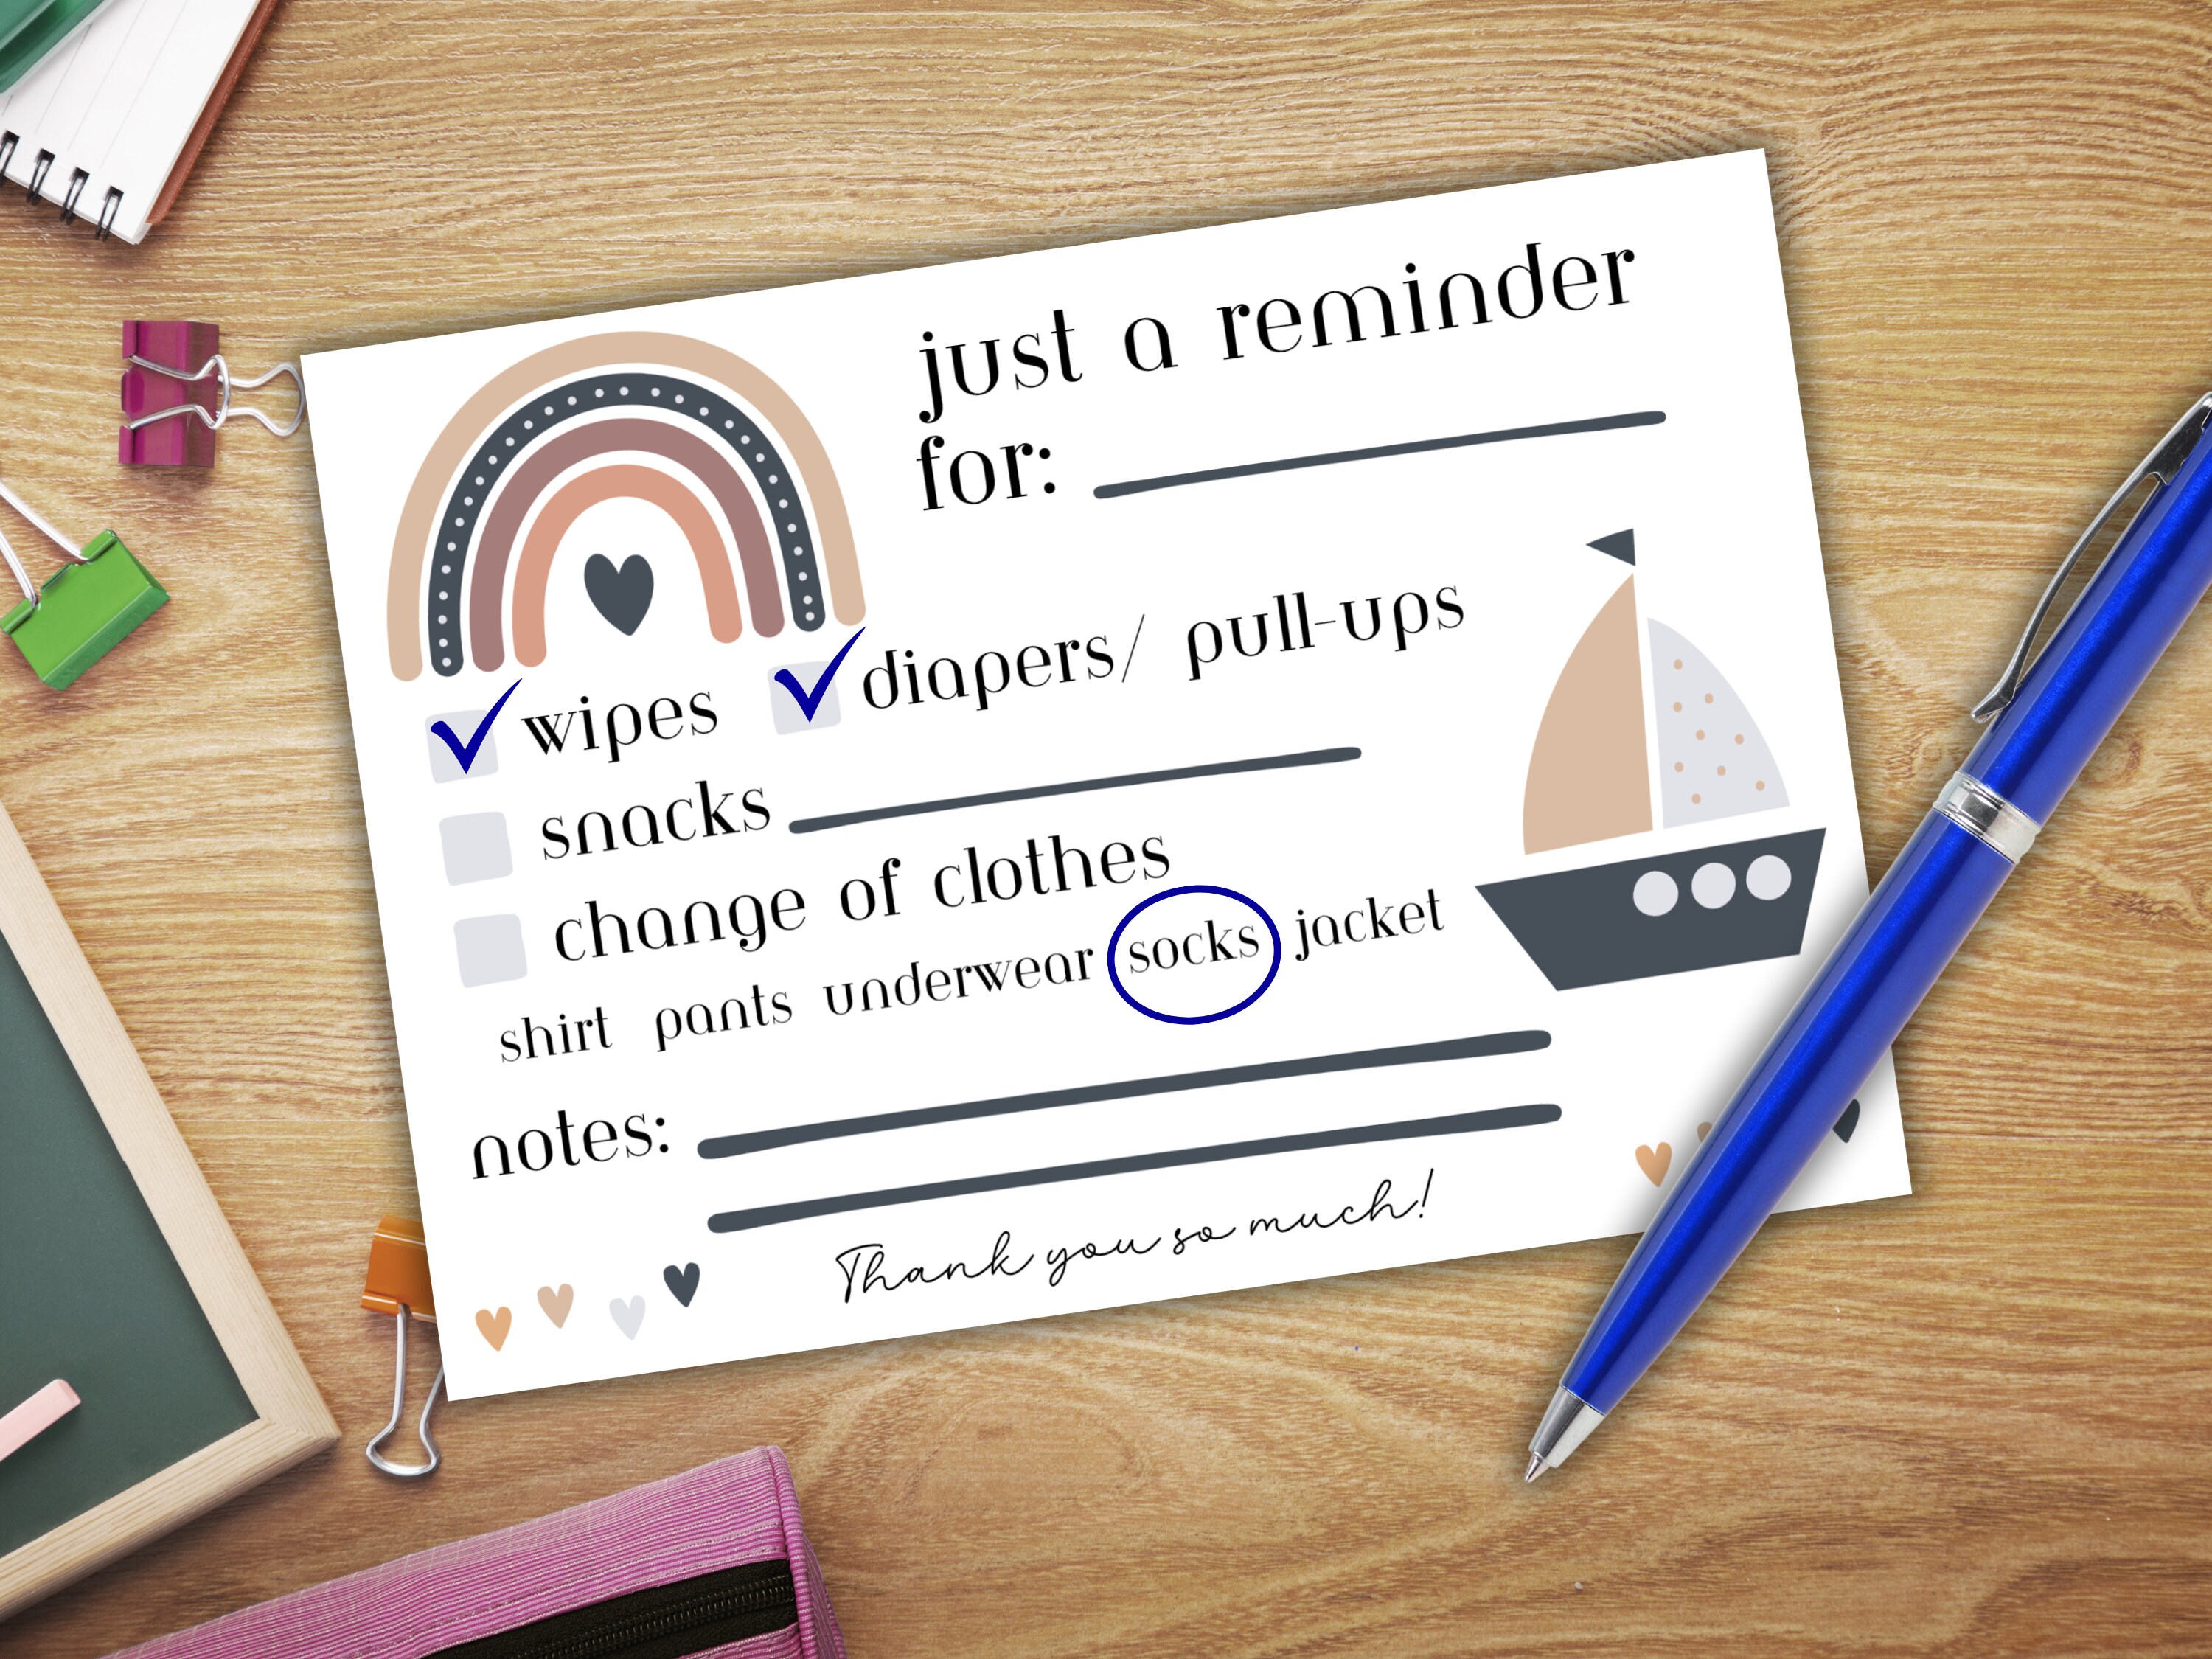 just a reminder
for:
wipes diapers/ pull-ups
snacks
change of clothes
shirt pants underwear socks jacket
notes:
Thank you so much!